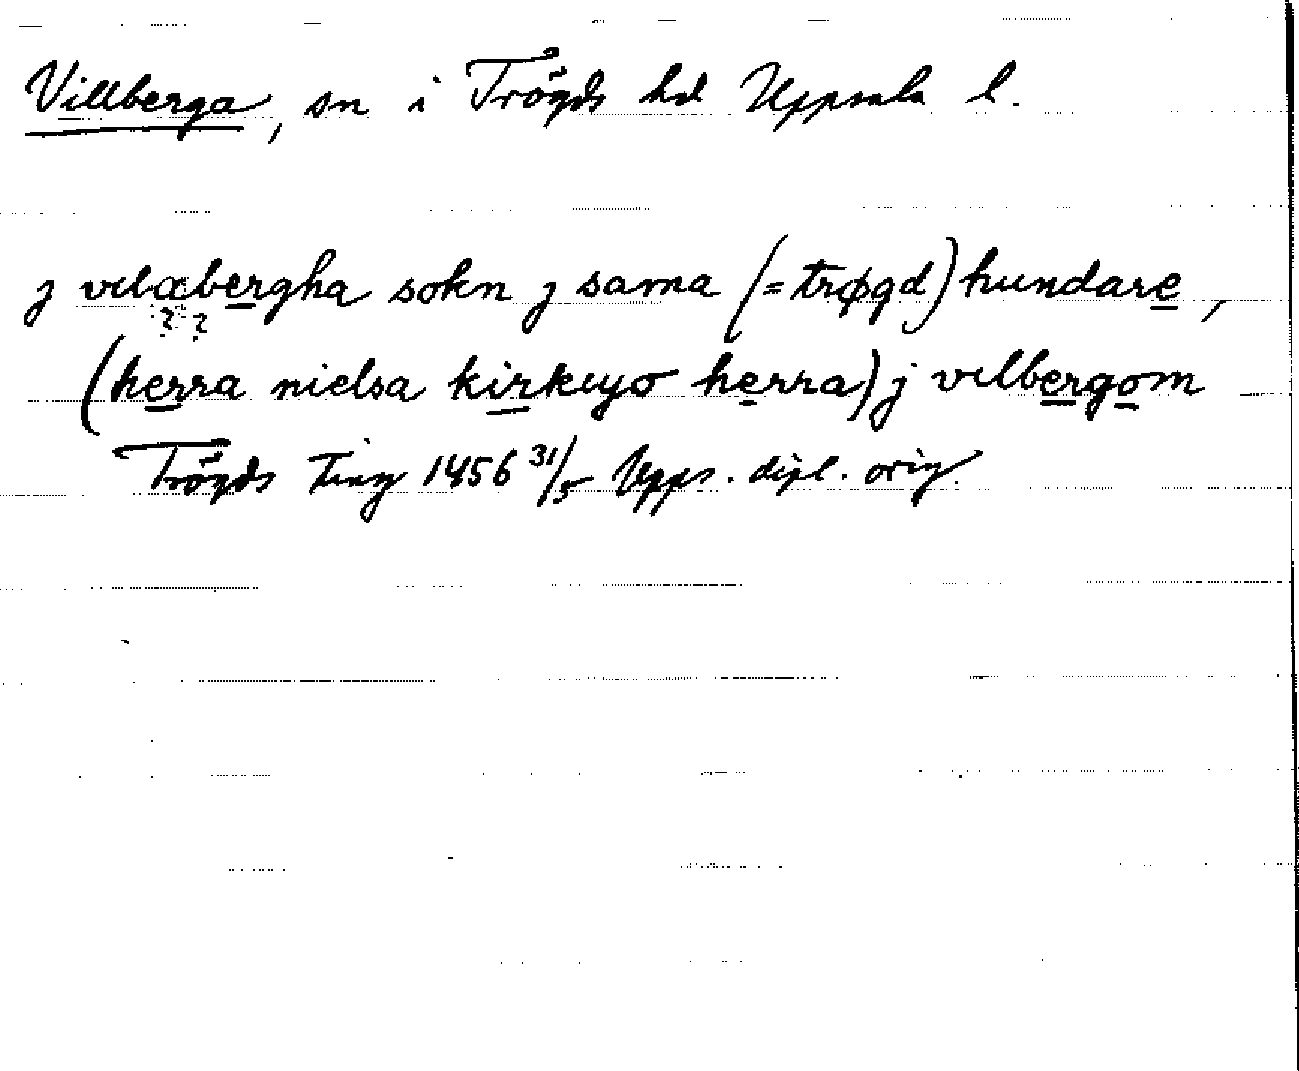 Villberga, sn i Trögds hd Uppsala l.
j velæbergha sokn j sama (= trøgd) hundare,
? ?
(herra nielsa kirkiuyo herra) j velbergom
Trögds Ting 1456 31/5 Upps. dipl. orig.